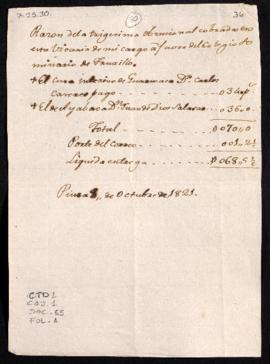 7.25.30.
36
Razon dela trigesima Conciliar cobrada en
esta Vicaria de mi cargo a favor del Colegio Se
minario de Truxillo.
+ El Cura interino de Guancamba Dn. Carlos
Carrasco pago 034,,0
+ El de Ayabaca Dn. Juan de Dios Salazar 036,,0
Total 070,,0
Porte del Correo 001,,2½
Liquida entrega 068,,5½
Piura de Octubre de 1821.
CTD1
CAJ. 1
DOC. 65
FOL. 1